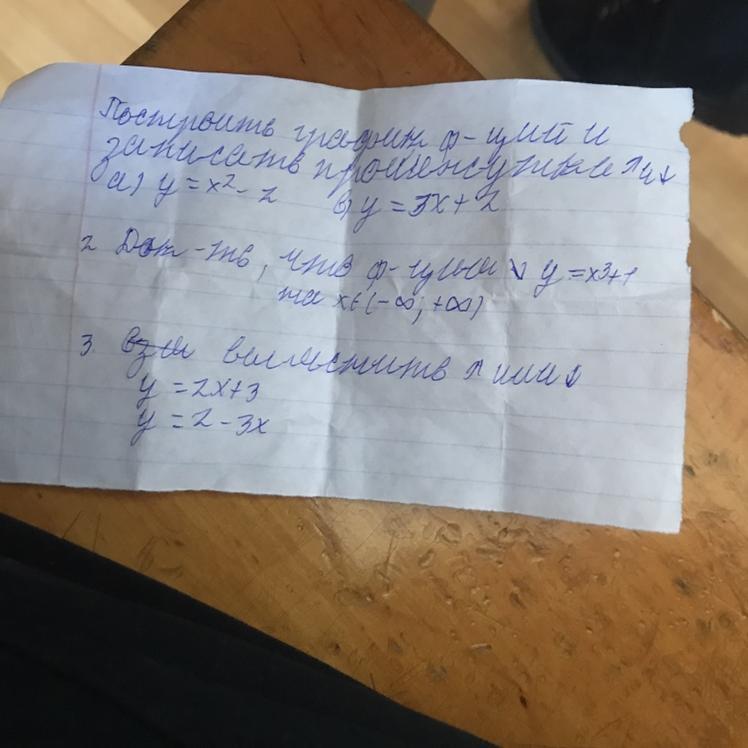 Построить график ф-ций и
записать промежутки ↗ и ↘
а) y = x² - 2 в) y = 3x + 2
2 Док-ть, что ф-ция ↘ y = x³+1
на x∈(-∞; +∞)
3 выяснить ↗ или ↘
y = 2x+3
y = 2 - 3x